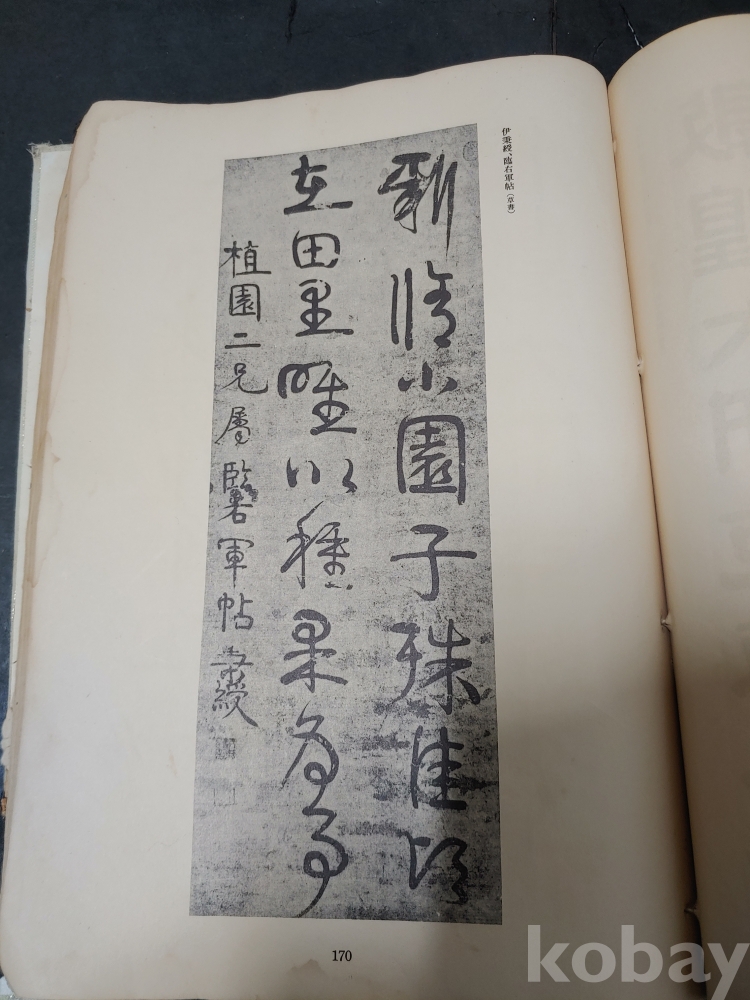 伊秉綬、臨右軍帖（草書）
新脩小園子殊佳頃
在田里唯以種果為事
植園二兄屬臨右軍帖 秉綬
170
kobay